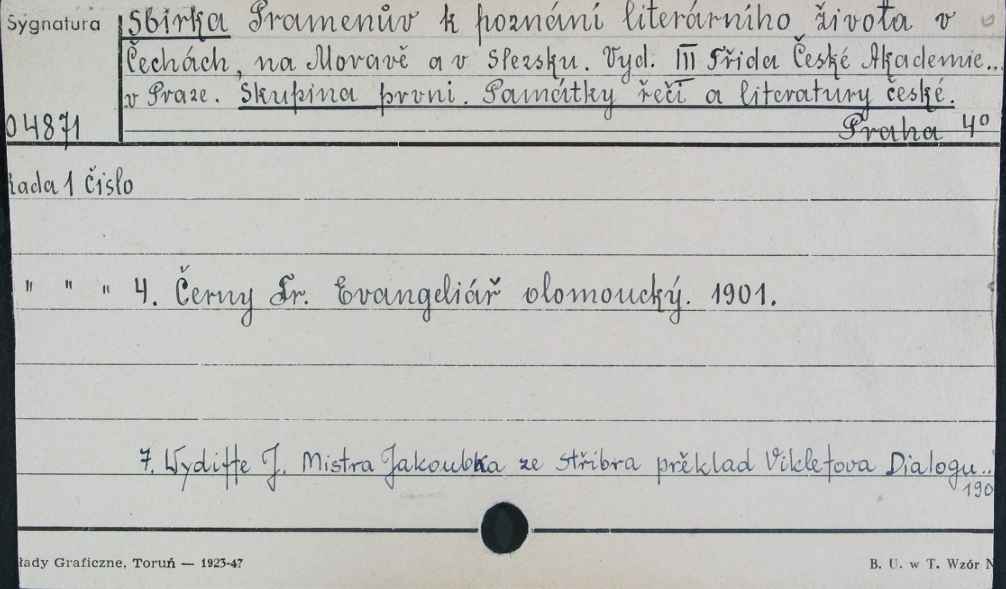 Sygnatura
Sbírka Pramenův k poznání literárního života v
Čechách, na Moravě a v Slezsku. Vyd. III Třída České Akademie...
v Praze. Skupina první. Památky řeči a literatury české.
04871
Praha 4º
Řada 1 Číslo
" " " 4. Černy Fr. Evangeliář olomoucký. 1901.
7. Wycliffe J. Mistra Jakoubka ze Stříbra překlad Viklefova Dialogu..
190
łady Graficzne, Toruń — 1923-47
B. U. w T. Wzór N